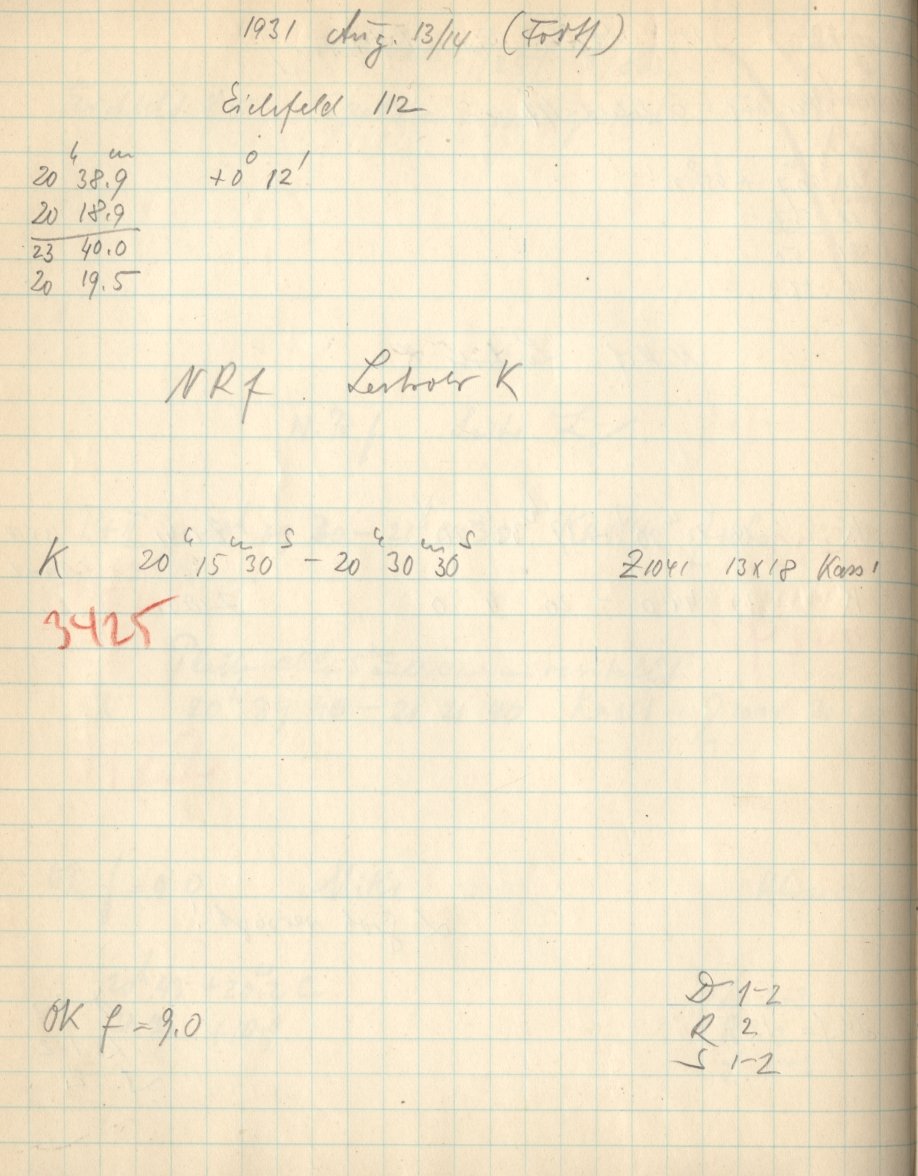 1931 Aug. 13/14 (Forts)
Eichfeld 112
h m
20 38.9 +0° 12'
20 18.9
23 40.0
20 19.5
NRf. Leitrohr K
K 20 h 15 m 30 s - 20 h 30 m 30 s Z1041 13x18 Kass 1
3425
D 1-2
OK f = 9.0 R 2
S 1-2